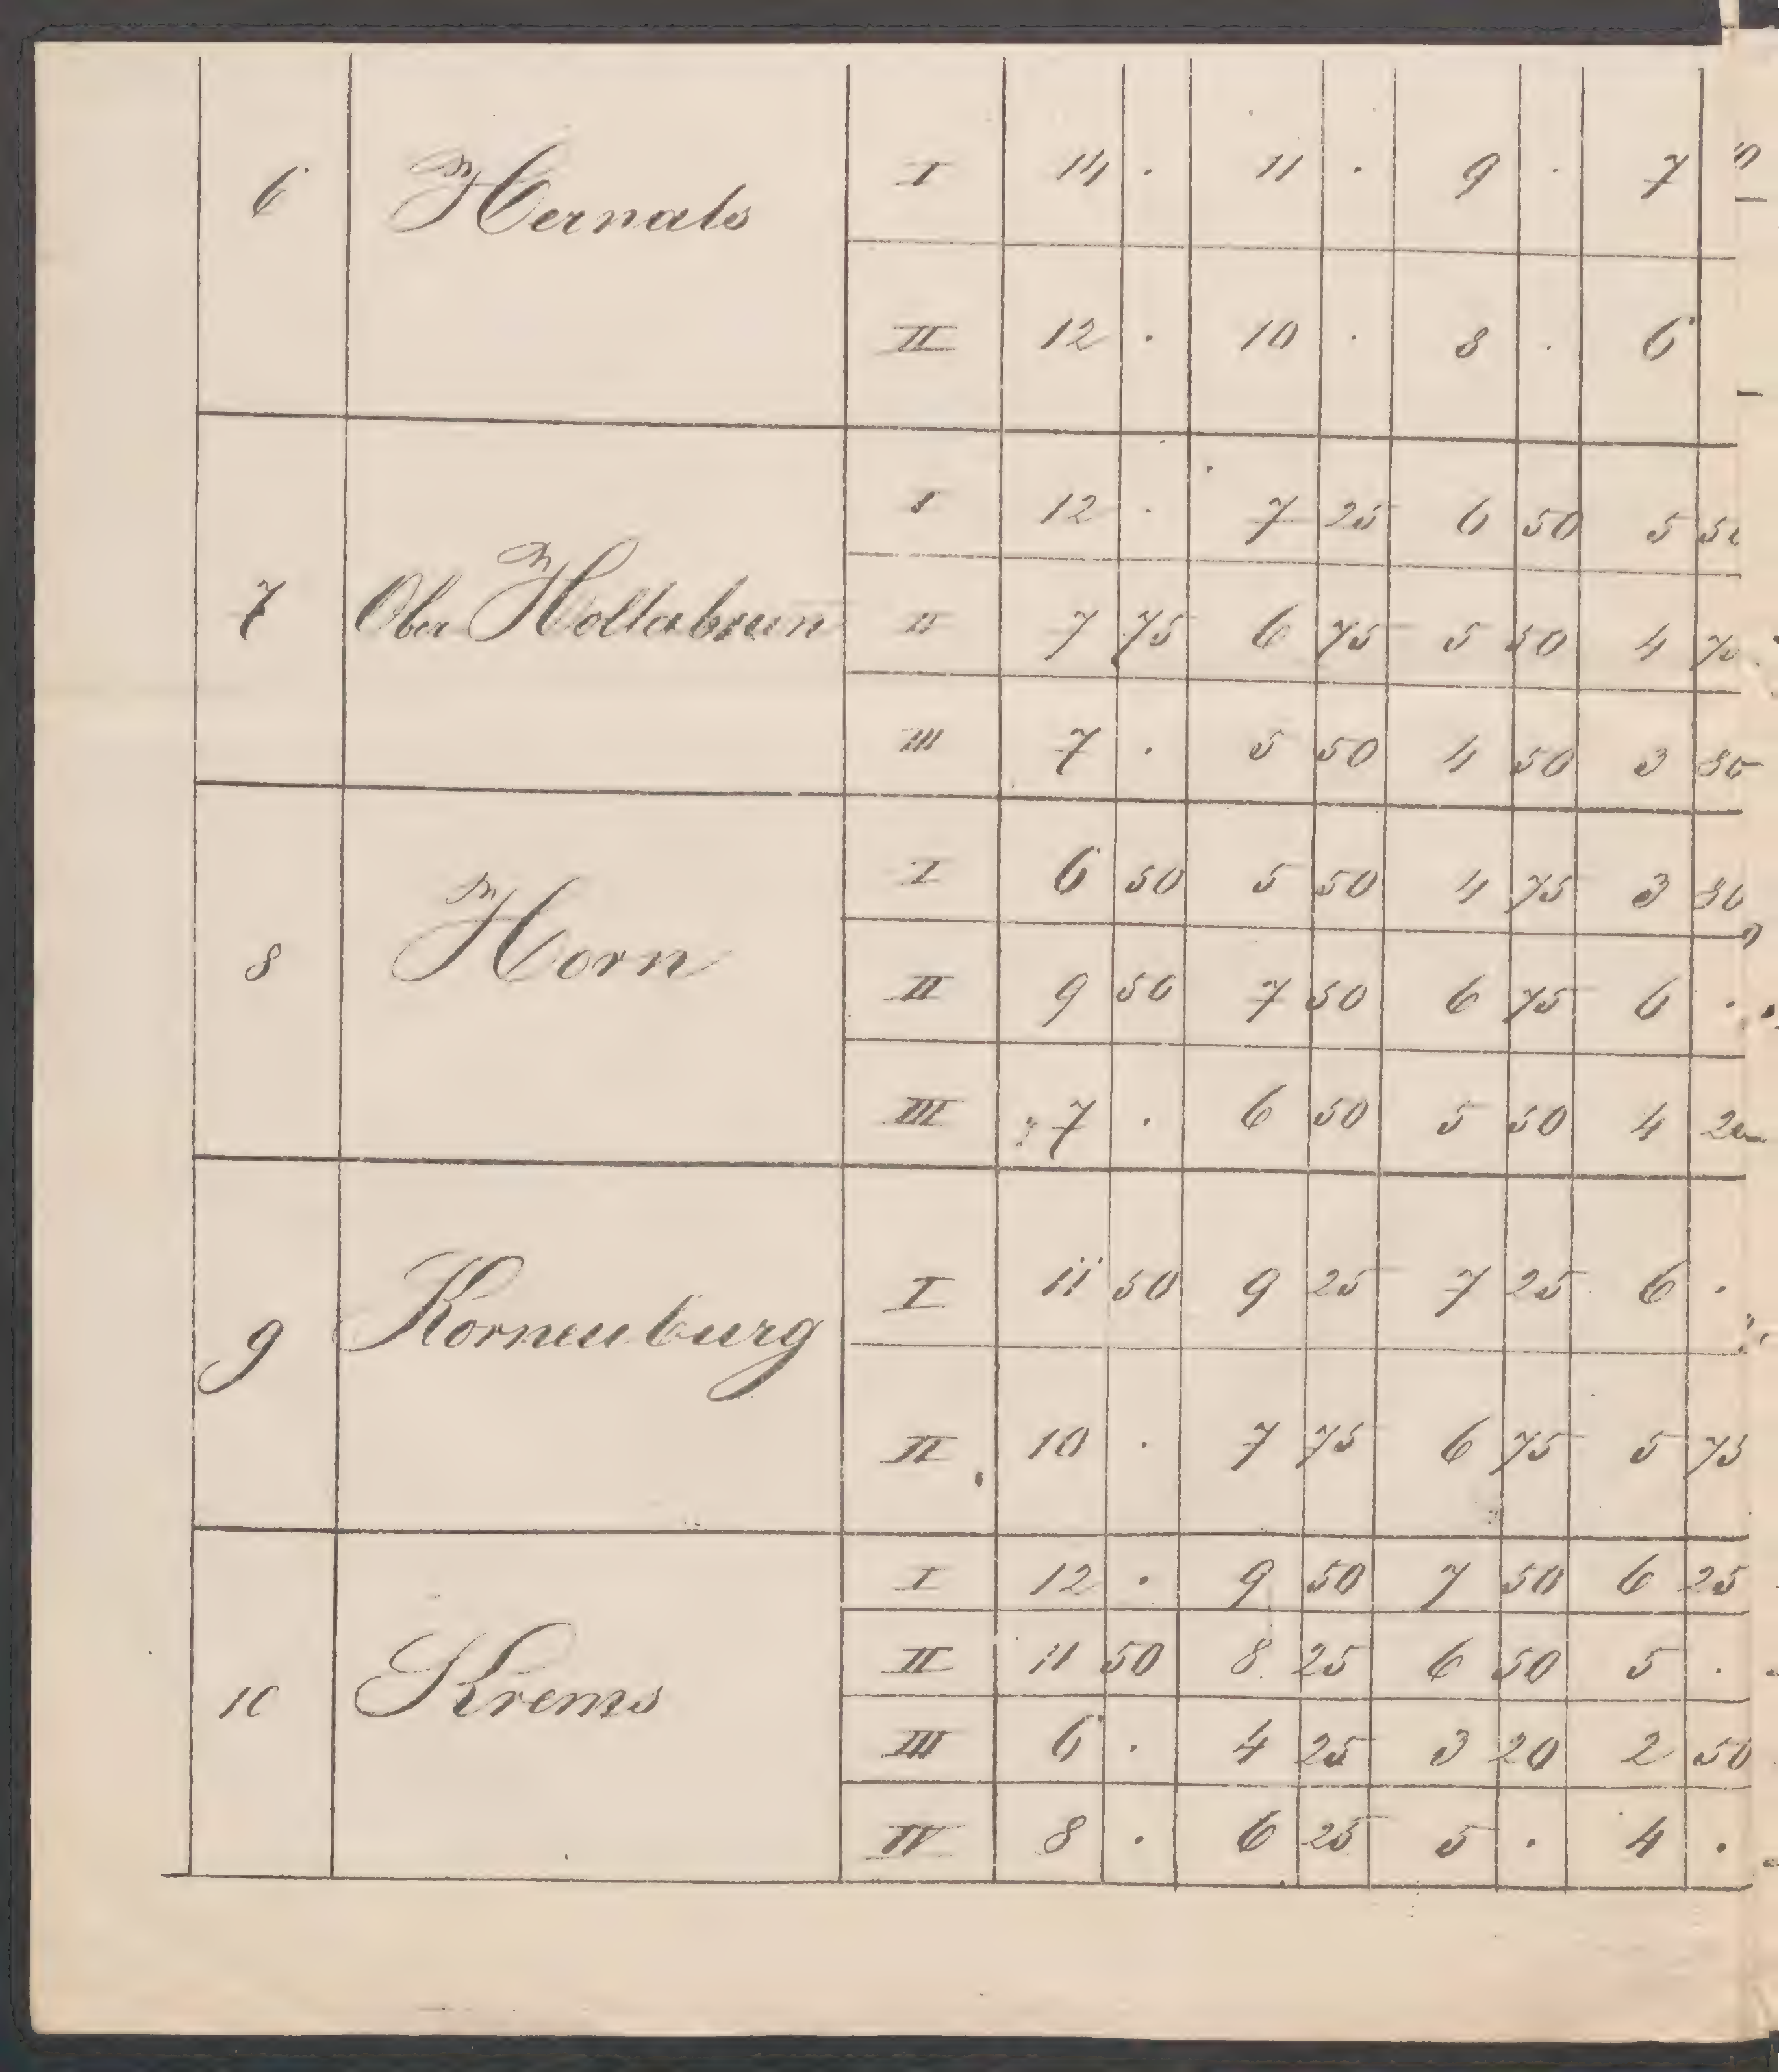 6 Hernals I 14 . 11 . 9 . 7
II 12 . 10 . 8 . 6
7 Ober Hollabrun I 12 . 7 25 6 50 5 50
II 7 75 6 75 5 50 4 75
III 7 . 5 50 4 50 3 80
8 Horn I 6 50 5 50 4 75 3 80
II 9 50 7 50 6 75 6 .
III 7 . 6 50 5 50 4 20
9 Korneuburg I 11 50 9 25 7 25 6 .
II 10 . 7 75 6 75 5 75
10 Krems I 12 . 9 50 7 50 6 25
II 11 50 8 25 6 50 5 .
III 6 . 4 25 3 20 2 50
IV 8 . 6 25 5 . 4 .